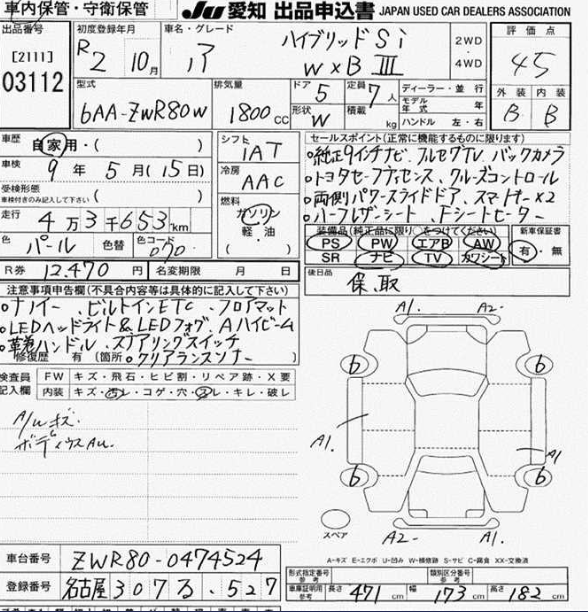 車内保管・守衛保管 JU 愛知 出品申込書 JAPAN USED CAR DEALERS ASSOCIATION
出品番号 初度登録年月 車名・グレード 評価点
[2111] R2 10月 ハイブリッド Si 2WD
03112 W×B III 4WD 4.5
型式 排気量 ドア 定員 ディーラー・並行 外装 内装
6AA-ZWR80W 1800cc 5 7人 モデル年式 年 年
形状 W 積載 kg ハンドル 左・右 B B
車歴 自家用・( ) シフト IAT セールスポイント(正常に機能するものに限ります)
車検 9年 5月 (15日) 冷房 AAC
○純正9インチナビ、フルセグTV、バックカメラ
○トヨタセーフティセンス、クルーズコントロール
受検形態 燃料
車検付きのみ記入して下さい ガソリン 軽・油
○両側パワースライドドア、スマートキー×2
○ハーフレザーシート、Fシートヒーター
走行 4万3千653km
色 パール 色替 色コード 070
装備品(純正品に限り○をつけてください) 新車保証書
PS PW エアB AW 有・無
SR ナビ TV カワシート
R券 12,470円 名変期限 月 日
後日品
保、取
注意事項申告欄(不具合内容等は具体的に記入して下さい)
○ナノイー、ビルトインETC、フロアマット
○LEDヘッドライト&LEDフォグ、Aハイビーム
○革巻ハンドル、ステアリングスイッチ
修復歴 有(箇所 ○クリアランスソナー )
検査員記入欄 FW キズ・飛石・ヒビ割・リペア跡・X要
内装 キズ・汚レ・コゲ・穴・スレ・キレ・破レ
A/Uキズ
ボディウスAU.
A1. A2-
6 6
A1. A1
6 6
スペア
A2- A1.
A-キズ E-エクボ U-凹み W-補修跡 S-サビ C-腐食 XX-交換済
車台番号 ZWR80-0474524
登録番号 名古屋 307 る・527
形式指定番号 参考 類別区分番号 参考
車庫証明用 参考 長さ 471cm 幅 173cm 高さ 182cm